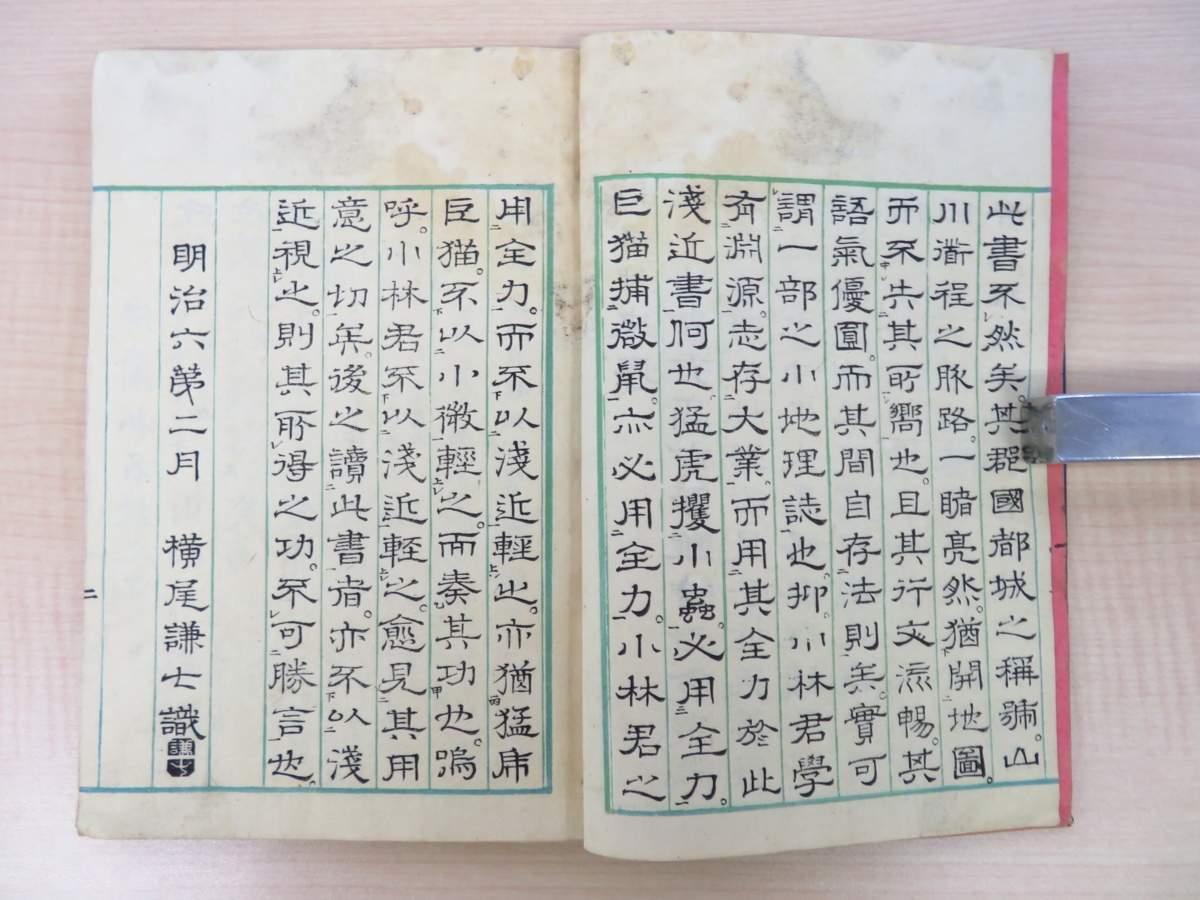 此書不然矣。其郡國都城之稱號。山
川衢程之脉路。一瞭亮然。猶開地圖。
而不失其所嚮也。且其行文流暢。其
語氣優圓。而其間自存法則矣。實可
謂一部之小地理誌也。抑小林君學
有淵源。志存大業。而用其全力於此
淺近書何也。猛虎攫小蟲。必用全力。
巨猫捕微鼠。亦必用全力。小林君之
用全力。而不以淺近輕之。亦猶猛虎
巨猫。不以小微輕之。而奏其功也。嗚
呼。小林君不以淺近輕之。愈見其用
意之切矣。後之讀此書者。亦不以淺
近視之。則其所得之功。不可勝言也。
明治六第二月 橫尾謙士識
二